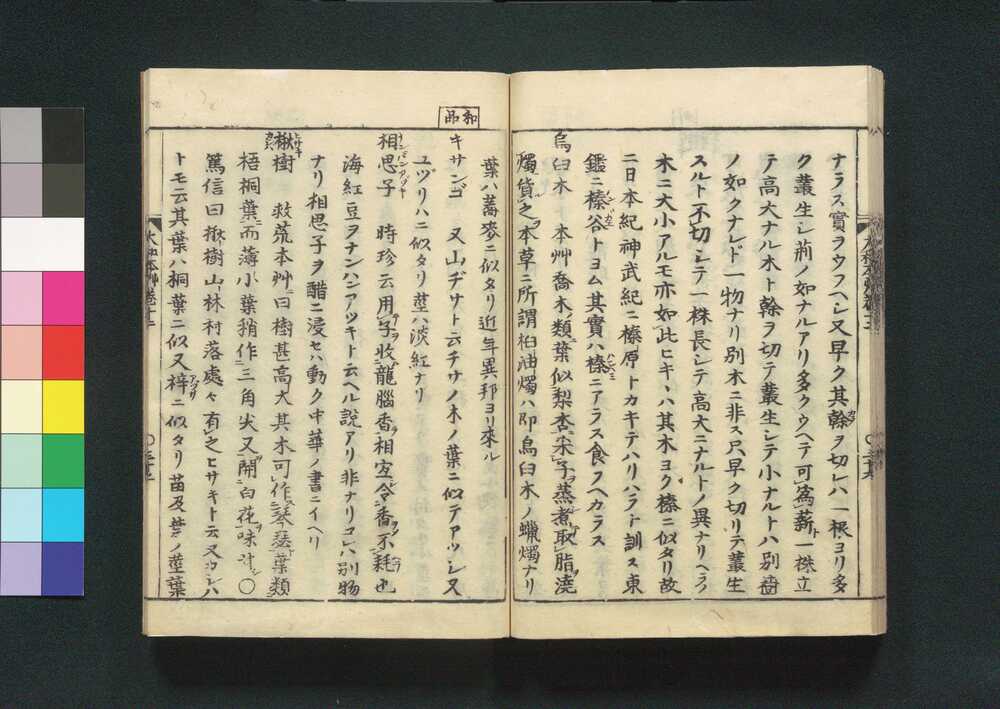 ナラス實ヲウフヘシ又早ク其幹ヲ切レハ一根ヨリ多
ク叢生シ荊ノ如ナルアリ多クウヘテ可爲薪一株立
テ高大ナル木ト幹ヲ切テ叢生シテ小ナルトハ別種
ノ如クナレド一物ナリ別木ニ非ス只早ク切リテ叢生
スルト不切シテ一株長シテ高大ニナルトノ異ナリヘラ
木ニ大小アルモ亦如此ヒキヽハ其木ヨク榛ニ似タリ故
ニ日本紀神武紀ニ榛原トカキテハリハラト訓ス東
鑑ニ榛谷トヨム其實ハ榛ニアラス食フヘカラス
烏臼木 本艸喬木類葉似梨杏采子蒸煮取脂澆
燭貨之本草ニ所謂桕油燭ハ即烏臼木ノ蠟燭ナリ
葉ハ蕎麥ニ似タリ近年異邦ヨリ來ル
和品
キサンゴ 又山ヂサト云チサノ木ノ葉ニ似テアツシ又
ユヅリハニ似タリ莖ハ淡紅ナリ
相思子 時珍云用子收龍腦香相宜令香不耗也
海紅豆ヲナンハンアツキト云ヘル説アリ非ナリコレハ別物
ナリ相思子ヲ醋ニ浸セハ動ク中華ノ書ニイヘリ
楸樹 救荒本艸曰樹甚高大其木可作琴瑟葉類
梧桐葉而薄小葉稍作三角尖叉開白花味甘〇
篤信曰楸樹山林村落處々有之ヒサキト云又カシハ
トモ云其葉ハ桐葉ニ似又梓ニ似タリ苗及芽ノ莖葉
大和本艸卷十二